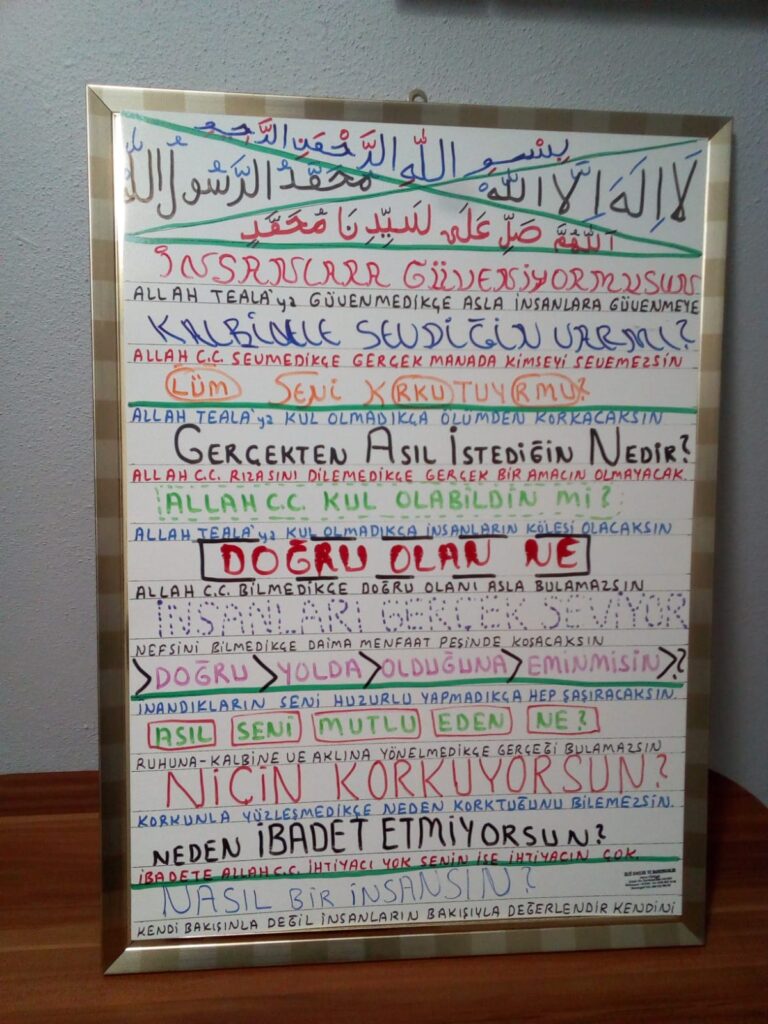 بِسْمِ اللّٰهِ الرَّحْمٰنِ الرَّحِيمِ
لَا اِلٰهَ اِلَّا اللّٰهْ مُحَمَّدُ الرَّسُولُ اللّٰه
اَللّٰهُمَّ صَلِّ عَلَى سَيِّدِنَا مُحَمَّدٍ
İNSANLARA GÜVENİYORMUSUN
ALLAH TEALA'ya GÜVENMEDİKÇE ASLA İNSANLARA GÜVENME
KALBİNLE SEVDİĞİN VARMI?
ALLAH C.C. SEVMEDİKÇE GERÇEK MANADA KİMSEYİ SEVEMEZSİN
LÜM SENİ KRKUTUYRMU?
ALLAH TEALA'ya KUL OLMADIKÇA ÖLÜMDEN KORKACAKSIN
GERÇEKTEN ASIL İSTEDİĞİN NEDİR?
ALLAH C.C. RIZASINI DİLEMEDİKÇE GERÇEK BİR AMACIN OLMAYACAK.
ALLAH C.C. KUL OLABİLDİN Mİ?
ALLAH TEALA'ya KUL OLMADIKÇA İNSANLARIN KÖLESİ OLACAKSIN
DOĞRU OLAN NE
ALLAH C.C. BİLMEDİKÇE DOĞRU OLANI ASLA BULAMAZSIN
İNSANLARI GERÇEK SEVİYOR
NEFSİNİ BİLMEDİKÇE DAİMA MENFAAT PEŞİNDE KOŞACAKSIN
>DOĞRU>YOLDA>OLDUĞUNA>EMİNMİSİN>>?
İNANDIKLARIN SENİ HUZURLU YAPMADIKÇA HEP ŞAŞIRACAKSIN.
ASIL SENİ MUTLU EDEN NE?
RUHUNA-KALBİNE VE AKLINA YÖNELMEDİKÇE GERÇEĞİ BULAMAZSIN
NİÇİN KORKUYORSUN?
KORKUNLA YÜZLEŞMEDİKÇE NEDEN KORKTUĞUNU BİLEMEZSİN.
NEDEN İBADET ETMİYORSUN?
İBADETE ALLAH C.C. İHTİYACI YOK SENİN İSE İHTİYACIN ÇOK.
NASIL BİR İNSANSIN?
KENDİ BAKIŞINLA DEĞİL İNSANLARIN BAKIŞIYLA DEĞERLENDİR KENDİNİ